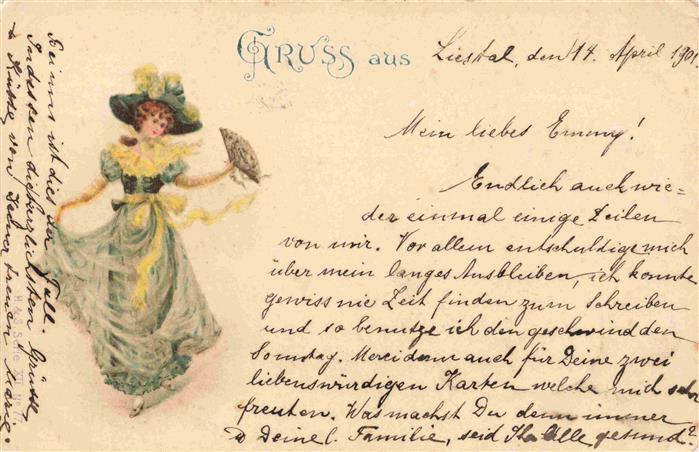 GRUSS aus Liestal, den 14. April 1901
Mein liebes Emmy!
Endlich auch wie-
der einmal einige Zeilen
von mir. Vor allem entschuldige mich
über mein langes Ausbleiben, ich konnte
gewiss nie Zeit finden zum Schreiben
und so benutze ich den geschwind den
Sonntag. Merci denn auch für Deine zwei
liebenswürdigen Karten welche mich sehr
freuten. Was machst Du denn immer
& Deine l. Familie, seid Ihr Alle gesund?
Bei uns ist dies der Fall.
Indessen die herzlichsten Grüsse
& Küsse von Deiner treuen Marie.